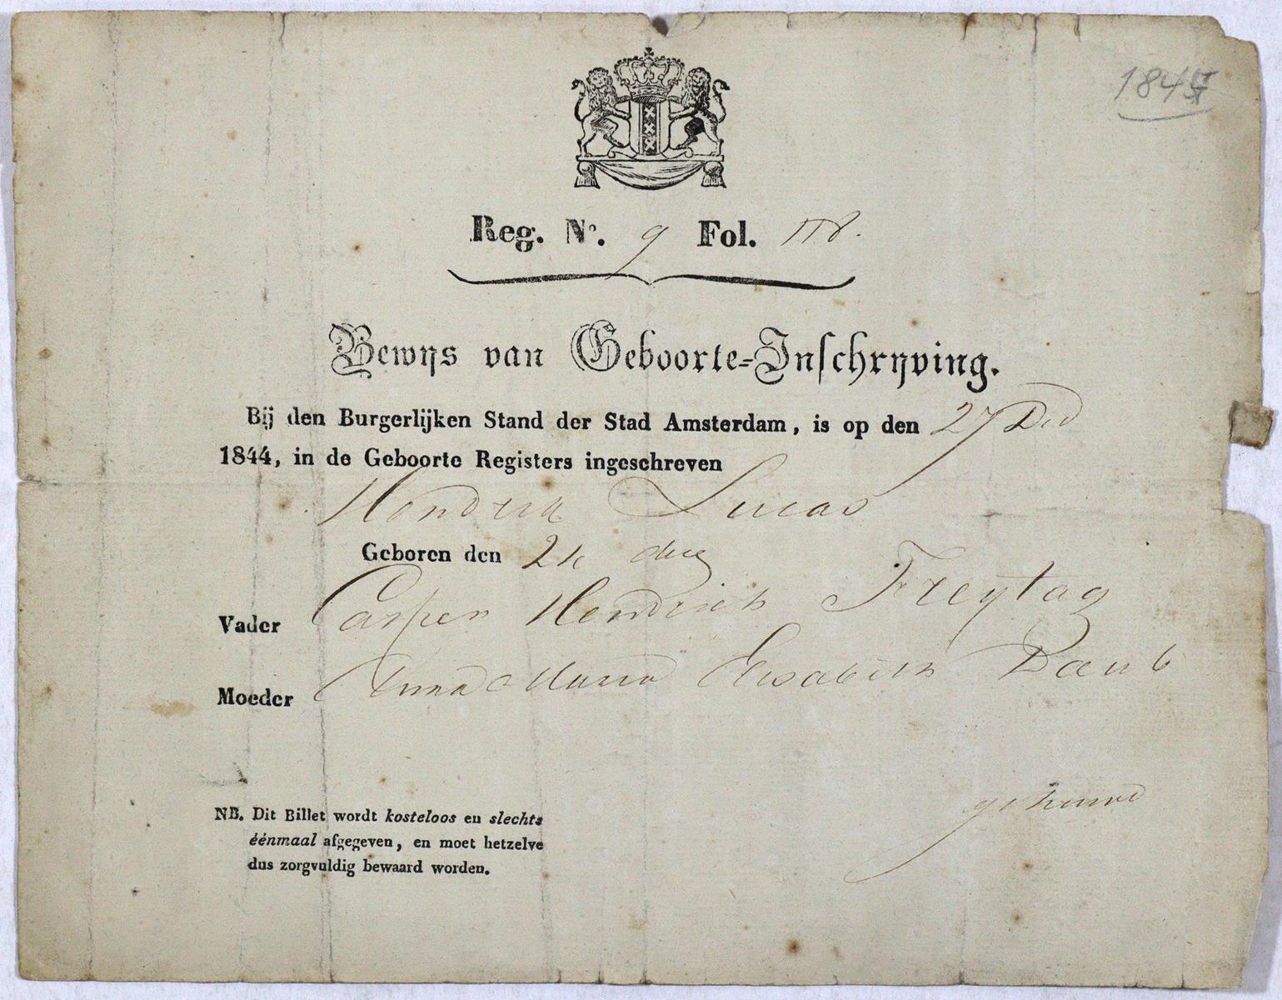 184
Reg. No. 9 Fol. 118.
Bewijs van Geboorte-Inschrijving.
Bij den Burgerlijken Stand der Stad Amsterdam, is op den 27 Dec
1844, in de Geboorte Registers ingeschreven
Hendrik Lucas
Geboren den 24 dec
Vader Casper Hendrich Freytag
Moeder Anna Maria Elisabeth Daub
NB. Dit Billet wordt kosteloos en slechts
éénmaal afgegeven, en moet hetzelve
dus zorgvuldig bewaard worden.